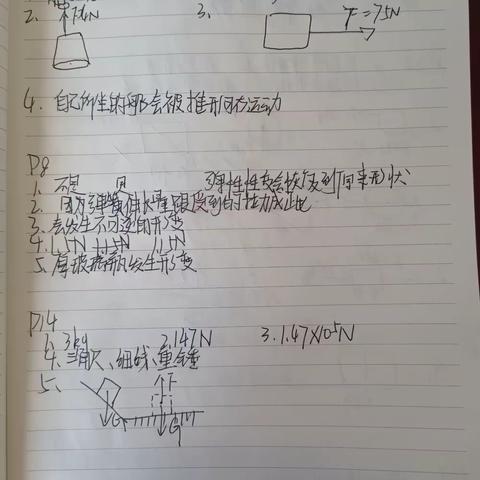 2. 3. F=75N
4. 自己所坐的那会被推形向右运动
P8
1. 不是 是 弹性 性变会恢复到原来形状
2. 因为弹簧伸长量跟受到的拉力成正比
3. 会发生不可逆的形变
4. 1.5N 1.5N 1.5N
5. 厚玻璃瓶发生形变
P14
1. 3kg 2. 147N 3. 1.47×10⁵N
4. 三角尺、细线、重锤
5. F G G